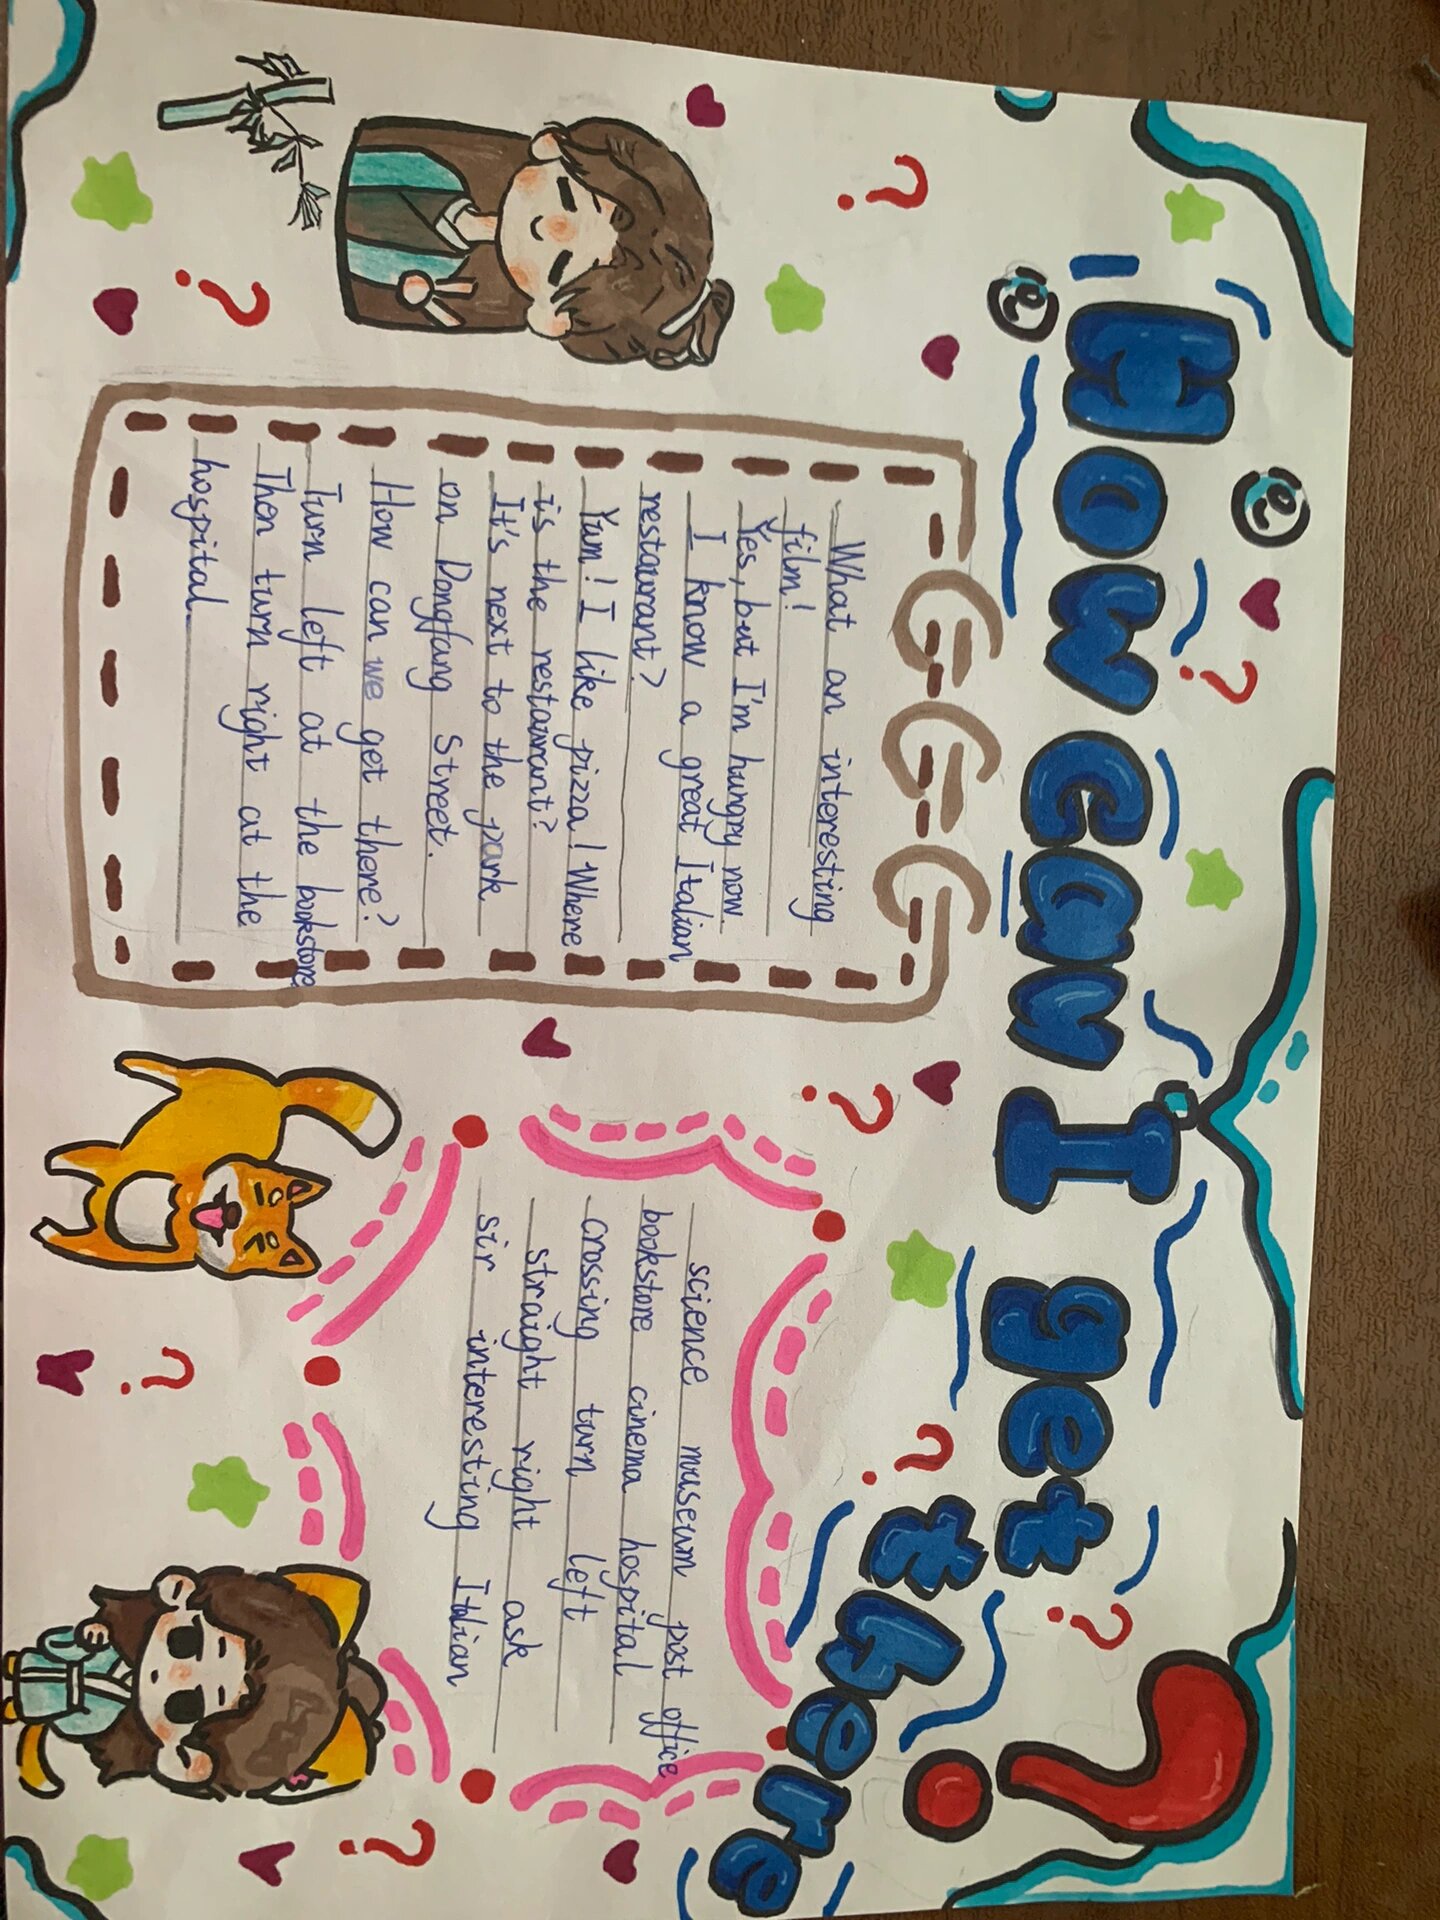 How can I get there?
What an interesting
film!
Yes, but I'm hungry now.
I know a great Italian
restaurant?
Yum! I like pizza! Where
is the restaurant?
It's next to the park
on Dongfang Street.
How can we get there?
Turn left at the bookstore.
Then turn right at the
hospital.
science museum post office
bookstore cinema hospital
crossing turn left
straight right ask
sir interesting Italian